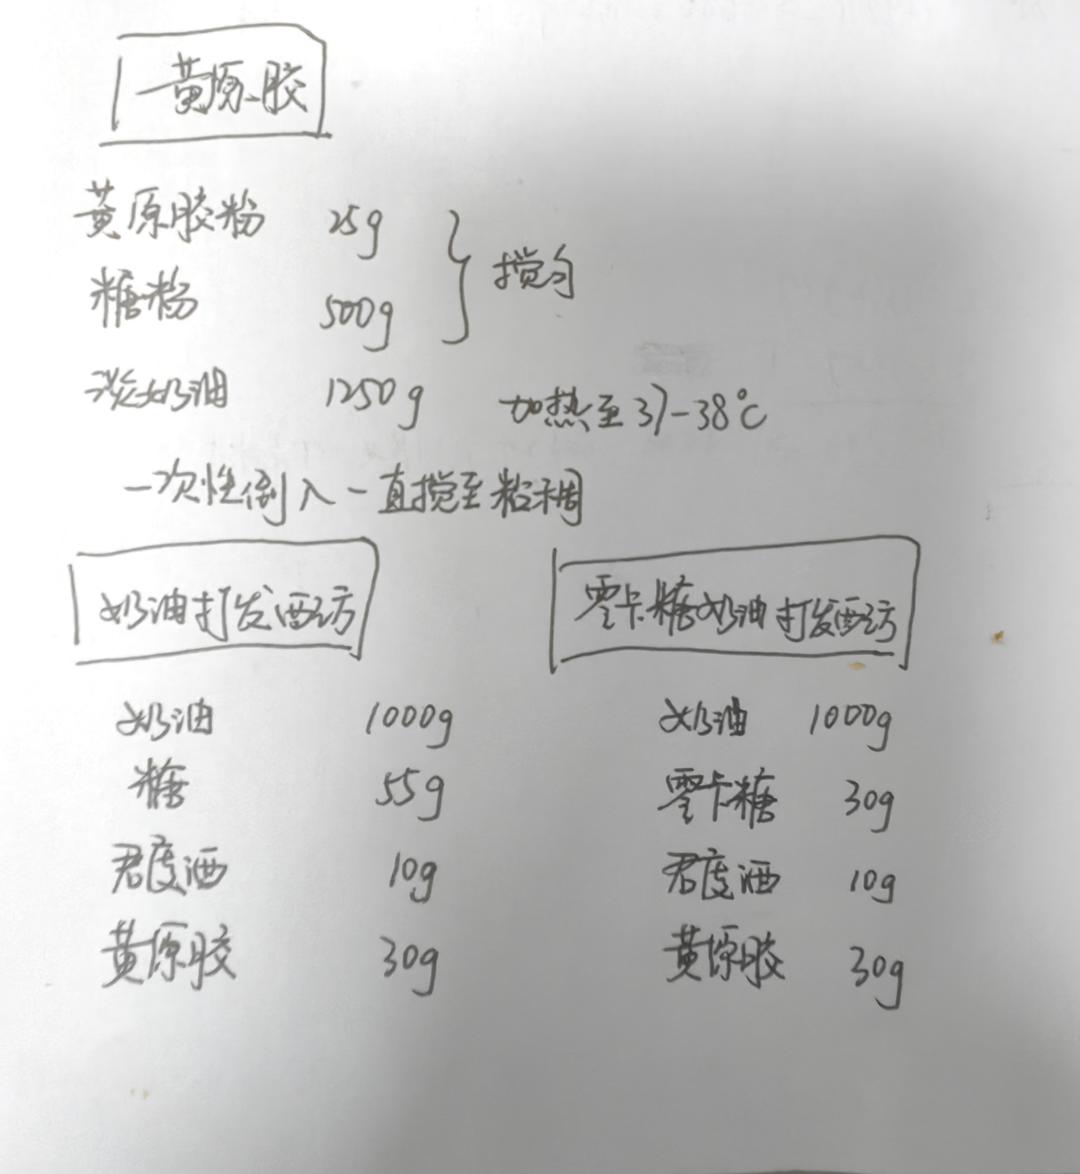 黄原胶
黄原胶粉 25g
糖粉 500g
搅匀
淡奶油 1250g 加热至37-38℃
一次性倒入一直搅至粘稠
奶油打发配方
奶油 1000g
糖 55g
君度酒 10g
黄原胶 30g
零卡糖奶油打发配方
奶油 1000g
零卡糖 30g
君度酒 10g
黄原胶 30g